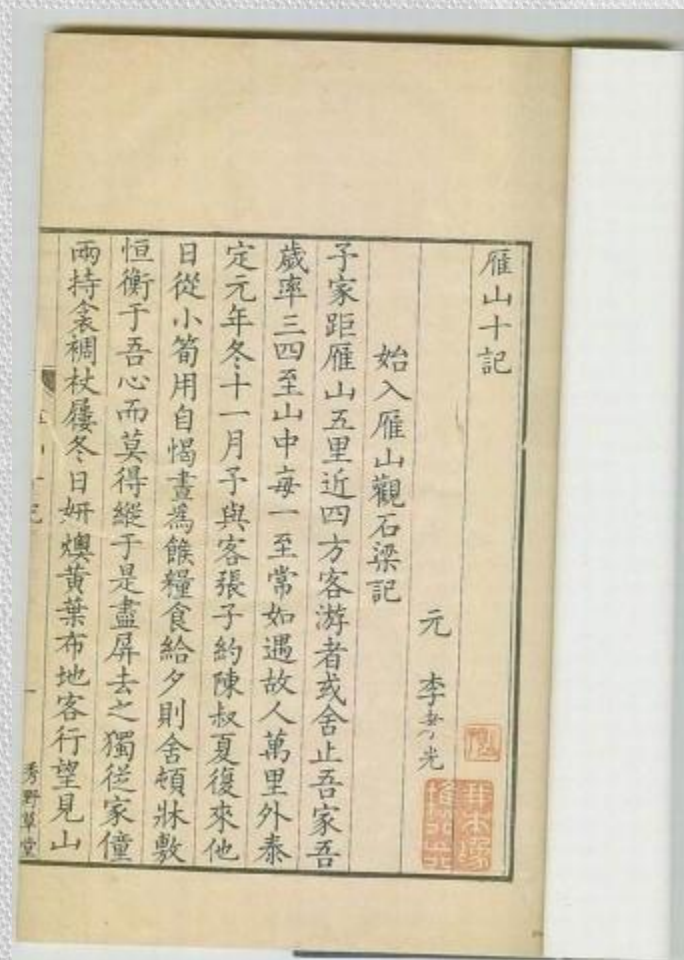 雁山十記
元 李孝光
始入雁山觀石梁記
予家距雁山五里近四方客游者或舍止吾家吾
歲率三四至山中每一至常如遇故人萬里外泰
定元年冬十一月予與客張子約陳叔夏復來他
日從小筍用自愒晝爲餱糧食給夕則舍頓牀敷
恒衡于吾心而莫得縱于是盡屏去之獨從家僮
兩持衾裯杖屨冬日妍燠黃葉布地客行望見山
一
秀野草堂